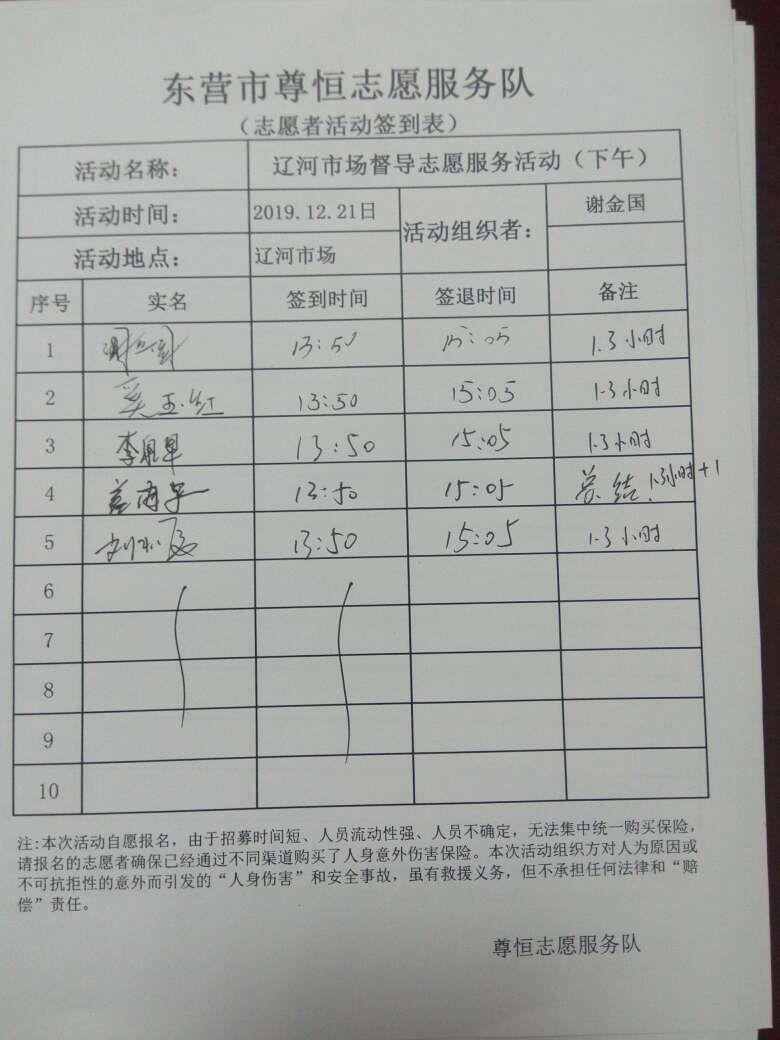 东营市尊恒志愿服务队
（志愿者活动签到表）
活动名称： 辽河市场督导志愿服务活动（下午）
活动时间： 2019.12.21日 活动组织者： 谢金国
活动地点： 辽河市场
序号 实名 签到时间 签退时间 备注
1 13:50 15:05 1.3小时
2 奚玉红 13:50 15:05 1.3小时
3 13:50 15:05 1.3小时
4 13:50 15:05 总结 1.3小时+1
5 13:50 15:05 1.3小时
6
7
8
9
10
注:本次活动自愿报名，由于招募时间短、人员流动性强、人员不确定，无法集中统一购买保险，
请报名的志愿者确保已经通过不同渠道购买了人身意外伤害保险。本次活动组织方对人为原因或
不可抗拒性的意外而引发的“人身伤害”和安全事故，虽有救援义务，但不承担任何法律和“赔
偿”责任。
尊恒志愿服务队